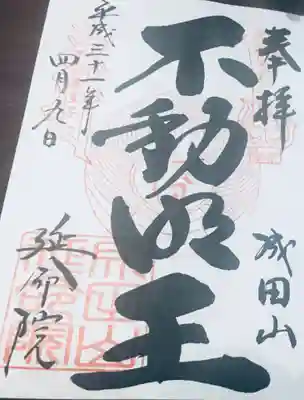 奉拝
成田山
不動明王
平成三十一年
四月九日
延命院